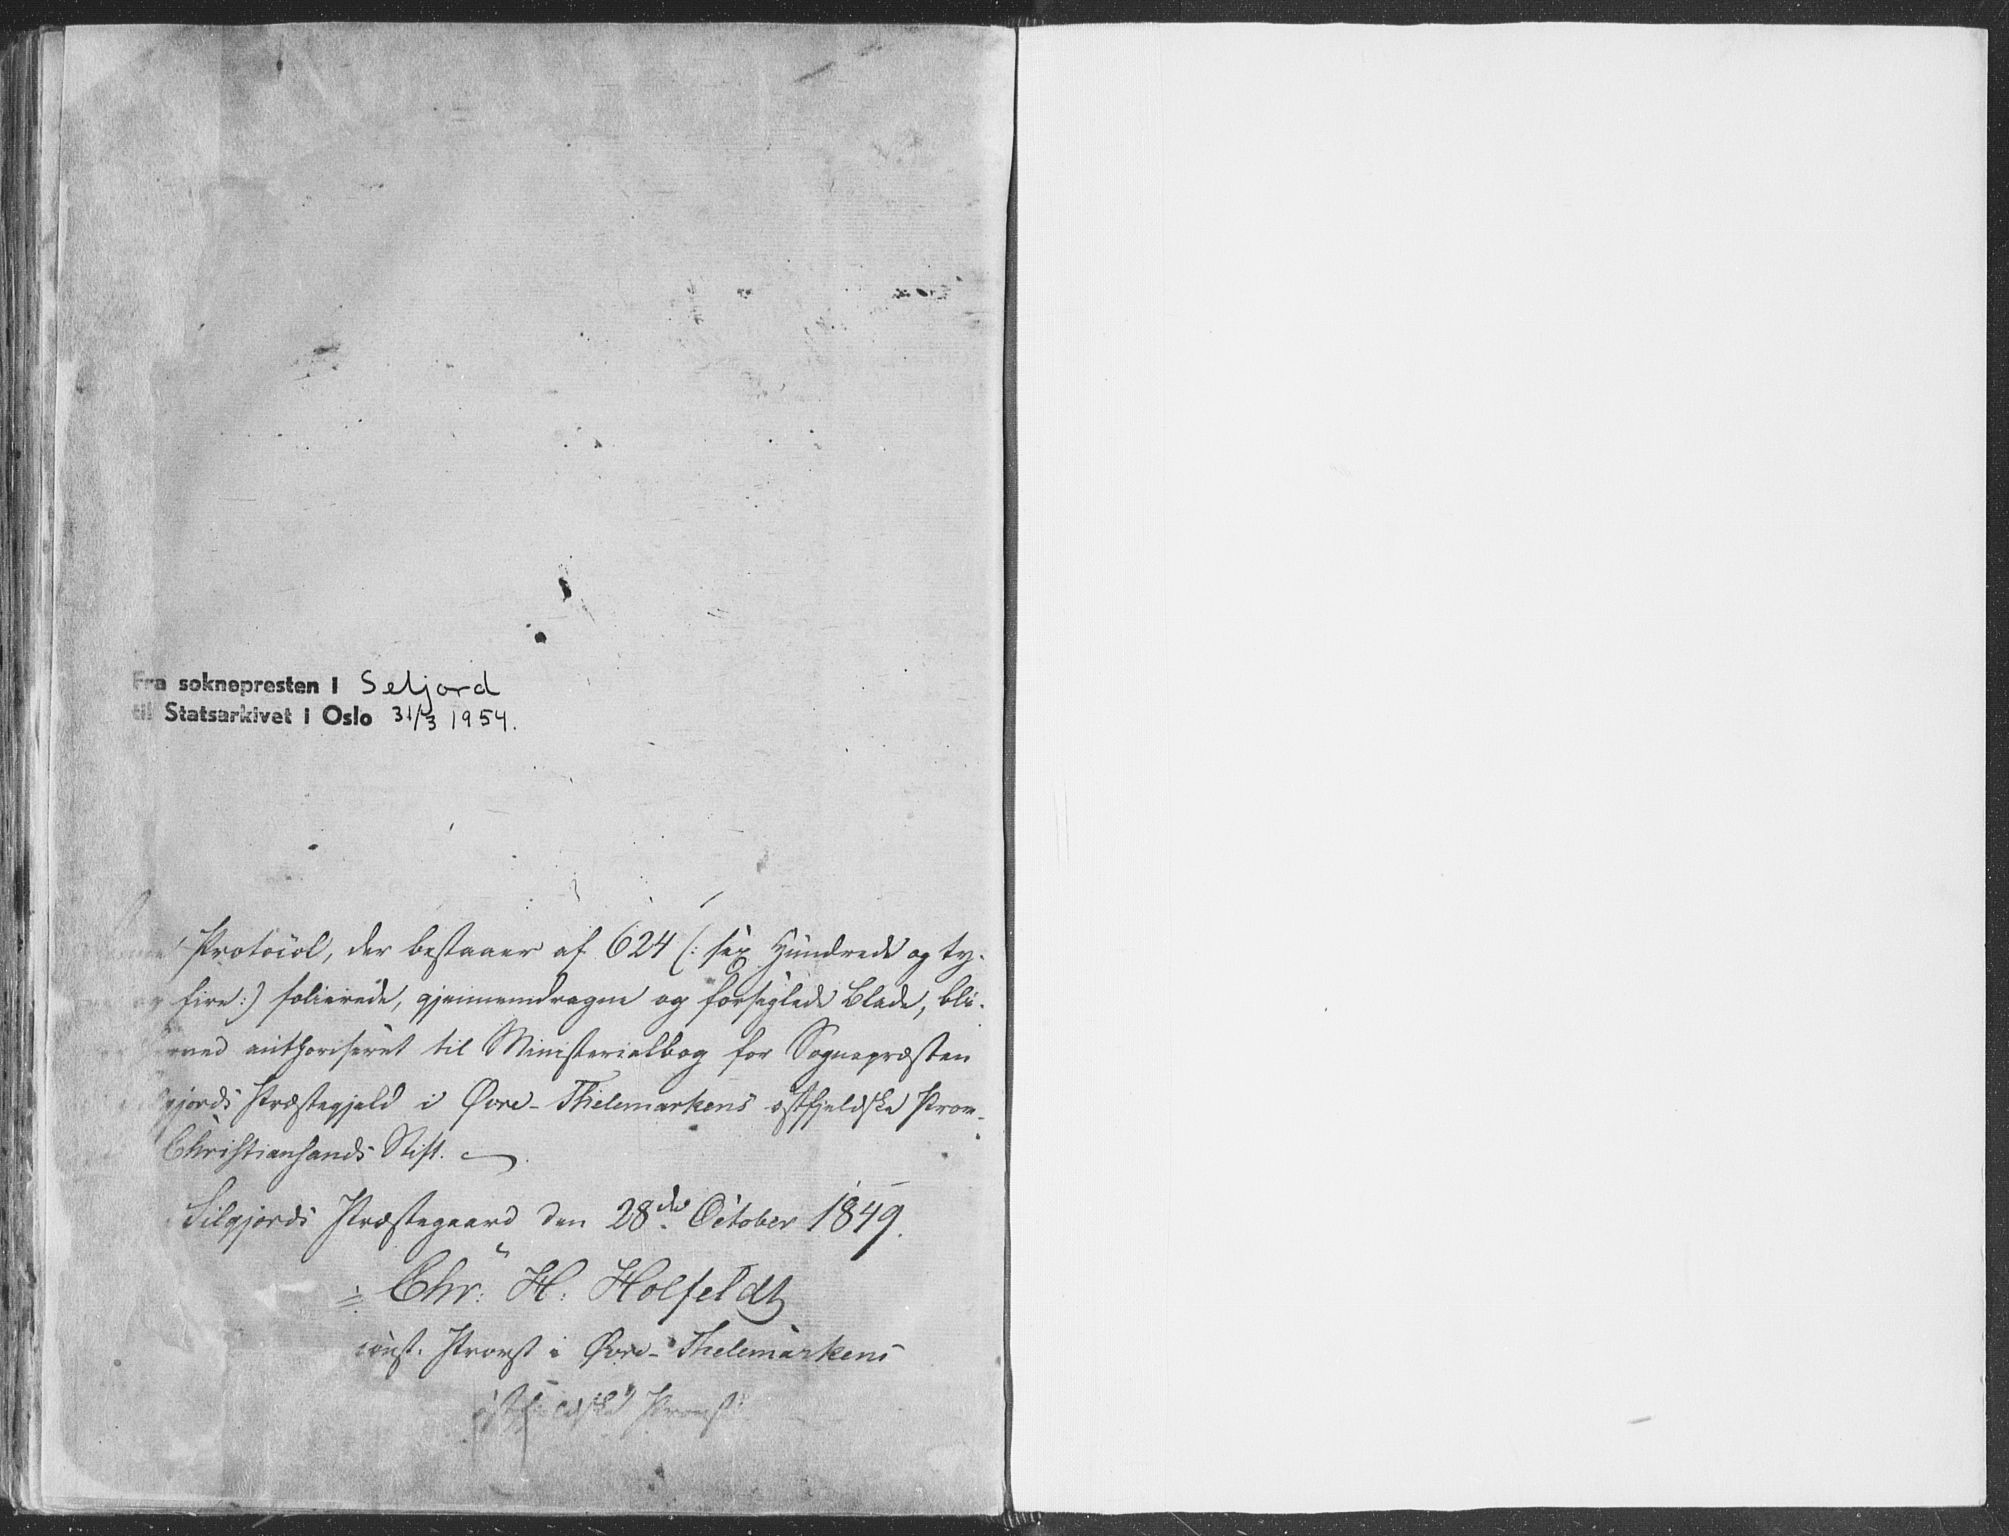 Fra soknepresten i Seljord
til Statsarkivet i Oslo 31/3 1954.
Protocol, der bestaaer af 624 (: sex Hundrede og ty-
og fire :) folierede, gjennemdragne og forseglede Blade, bli-
herved authoriseret til Ministerialbog for Sognepræsten
gjords Præstegjeld i Øvre-Thelemarkens østfjeldske Prov-
Christiansands Stift.
Silgjords Præstegaard den 28de October 1849.
Chr. H. Holfeldt
const. Provst i Øvre-Thelemarkens
østfjeldske Provsti